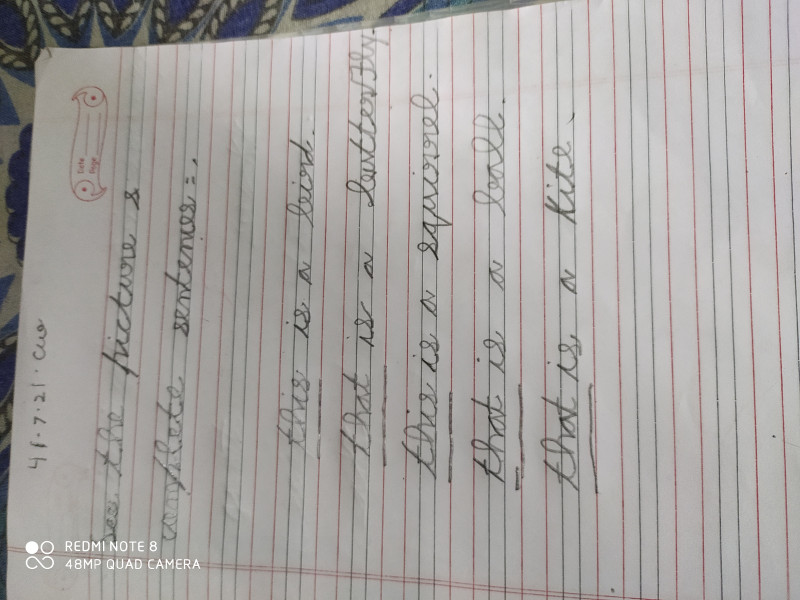 Date
Page
7.21. cw
See the picture &
complete sentences:-.
this is a bird.
that is a butterfly.
this is a squirrel.
that is a ball.
that is a kite.
REDMI NOTE 8
48MP QUAD CAMERA